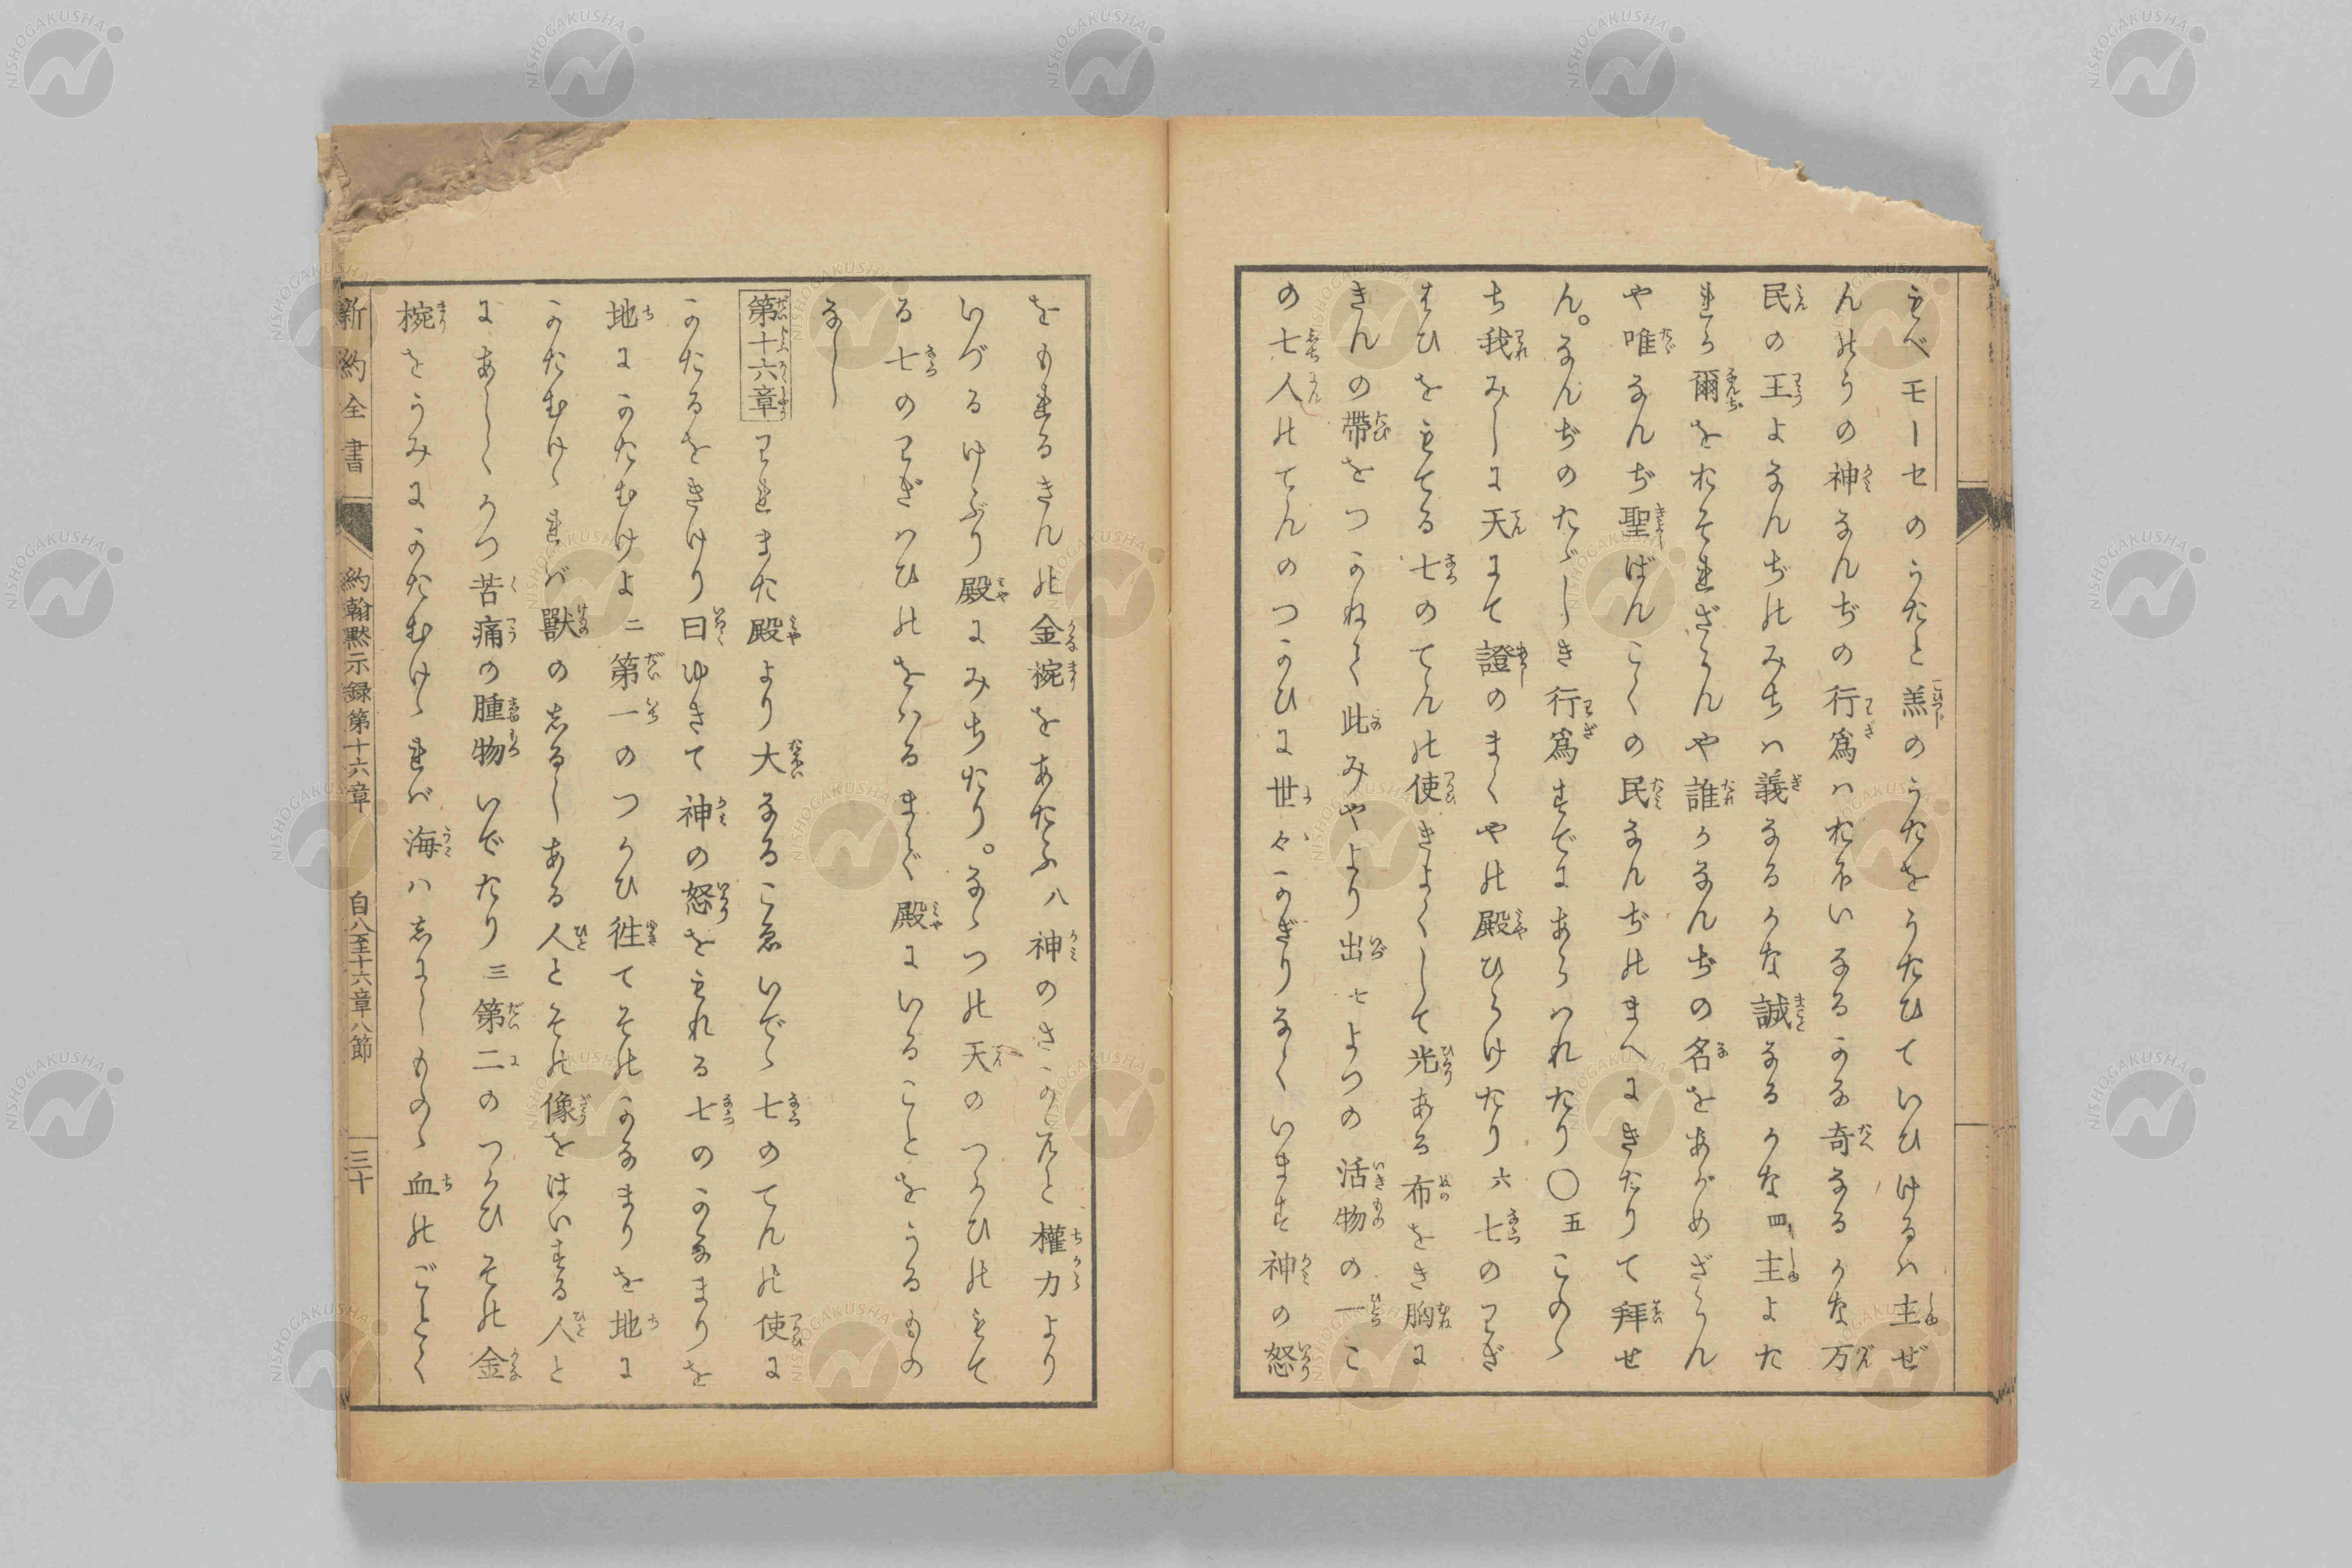 もべモーセのうたと羔のうたをうたひていひけるハ主ぜ
んのうの神なんぢの行爲ハおほいなるかな奇なるかな万
民の王よなんぢのみちハ義なるかな誠なるかな四主よた
れか爾をおそれざらんや誰かなんぢの名をあがめざらん
や唯なんぢ聖ばんこくの民なんぢのまへにきたりて拜せ
ん。なんぢのたゞしき行爲すでにあらハれたり〇五このゝ
ち我みしに天にて證のまくやの殿ひらけたり六七のわざ
はひをもてる七のてんの使きよくして光ある布をき胸に
きんの帶をつかねて此みやより出七よつの活物の一こ
の七人のてんのつかひに世々かぎりなくいます神の怒
をもれるきんの金椀をあたふ八神のさかえと權力より
いづるけぶり殿にみちたり。なゝつの天のつかひのもて
る七のわざハひのをハるまで殿にいることをうるもの
なし
第十六章われまた殿より大なるこゑいでゝ七のてんの使に
かたるをきけり曰ゆきて神の怒をもれる七のかなまりを
地にかたむけよ二第一のつかひ徃てそのかなまりを地に
かたむけゝれバ獸のしるしある人とその像をはいする人と
にあしくかつ苦痛の腫物いでたり三第二のつかひその金
椀をうみにかたむけゝれバ海ハしにしものゝ血のごとく
新約全書 約翰黙示録第十六章 自八至十六章八節 三十
NISHOGAKUSHA